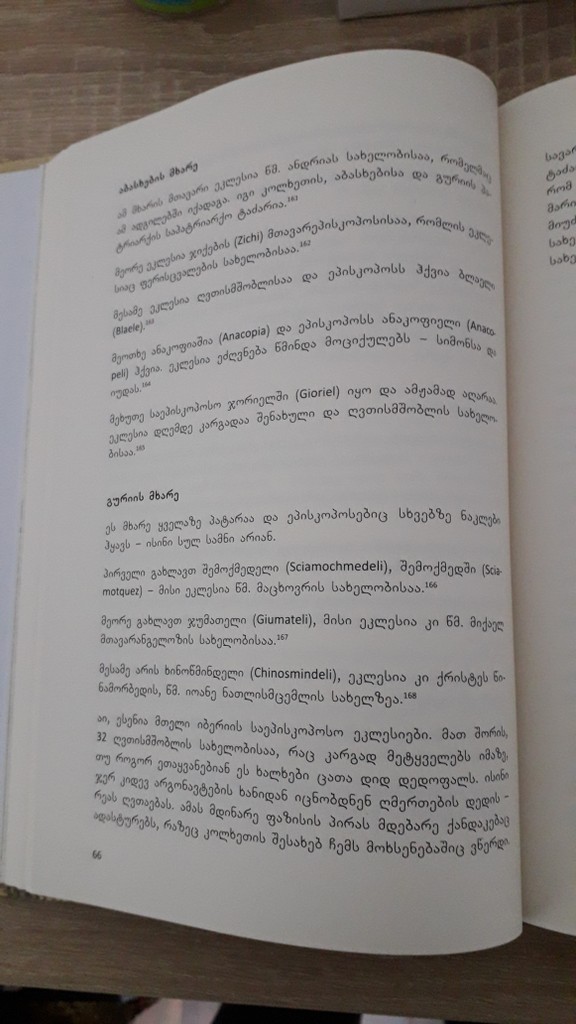 აბასხების მხარე
ამ მხარის მთავარი ეკლესია წმ. ანდრიას სახელობისაა, რომელმაც
ამ ადგილებში იქადაგა. იგი კოლხეთის, აბასხებისა და გურიის პა-
ტრიარქის საპატრიარქო ტაძარია.¹⁶¹
მეორე ეკლესია ჯიქების (Zichi) მთავარეპისკოპოსისაა, რომლის ეკლე-
სიაც ფერისცვალების სახელობისაა.¹⁶²
მესამე ეკლესია ღვთისმშობლისაა და ეპისკოპოსს ჰქვია ბლაელი
(Blaele).¹⁶³
მეოთხე ანაკოფიაშია (Anacopia) და ეპისკოპოსს ანაკოფიელი (Anaco-
peli) ჰქვია. ეკლესია ეძღვნება წმინდა მოციქულებს – სიმონსა და
იუდას.¹⁶⁴
მეხუთე საეპისკოპოსო ჯორიელში (Gioriel) იყო და ამჟამად აღარაა.
ეკლესია დღემდე კარგადაა შენახული და ღვთისმშობლის სახელო-
ბისაა.¹⁶⁵
გურიის მხარე
ეს მხარე ყველაზე პატარაა და ეპისკოპოსებიც სხვებზე ნაკლები
ჰყავს – ისინი სულ სამნი არიან.
პირველი გახლავთ შემოქმედელი (Sciamochmedeli), შემოქმედში (Scia-
motquez) – მისი ეკლესია წმ. მაცხოვრის სახელობისაა.¹⁶⁶
მეორე გახლავთ ჯუმათელი (Giumateli), მისი ეკლესია კი წმ. მიქაელ
მთავარანგელოზის სახელობისაა.¹⁶⁷
მესამე არის ხინოწმინდელი (Chinosmindeli), ეკლესია კი ქრისტეს წი-
ნამორბედის, წმ. იოანე ნათლისმცემლის სახელზეა.¹⁶⁸
აი, ესენია მთელი იბერიის საეპისკოპოსო ეკლესიები. მათ შორის,
32 ღვთისმშობლის სახელობისაა, რაც კარგად მეტყველებს იმაზე,
თუ როგორ ეთაყვანებიან ეს ხალხები ცათა დიდ დედოფალს. ისინი
ჯერ კიდევ არგონავტების ხანიდან იცნობდნენ ღმერთების დედის –
რეას ღვთაებას. ამას მდინარე ფაზისის პირას მდებარე ქანდაკებაც
ადასტურებს, რაზეც კოლხეთის შესახებ ჩემს მოხსენებაშიც ვწერდი.
66
სავარ
ტაძა
რომ
მარი
მიუძ
სახე
სახე